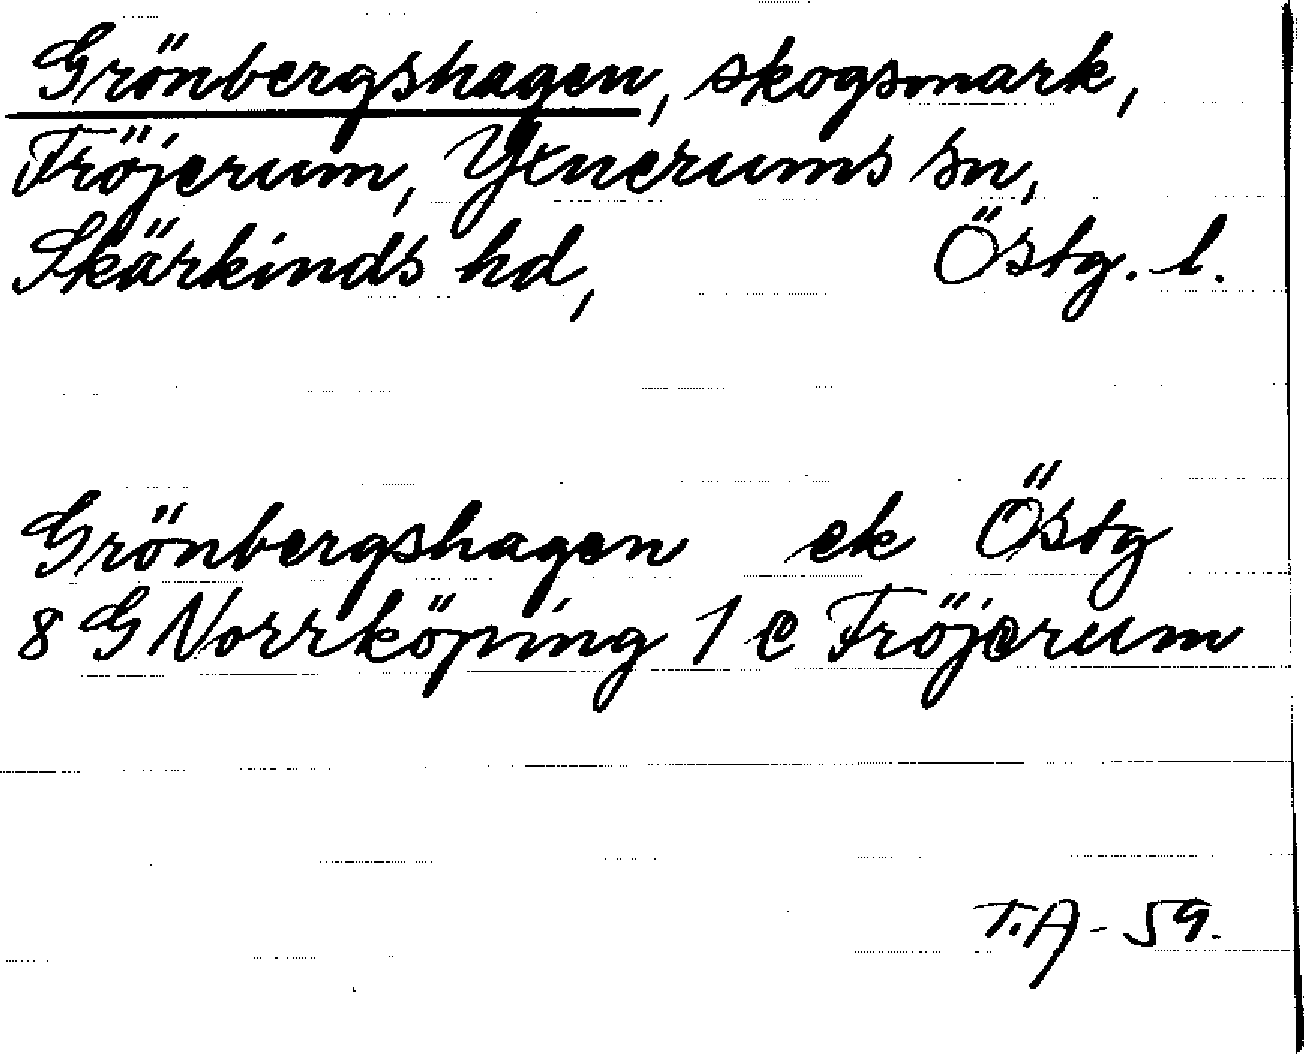 Grönbergshagen, skogsmark,
Fröjerum, Yxnerums sn,
Skärkinds hd, Östg. l.
Grönbergshagen ek Östg
8 G Norrköping 1 e Fröjerum
T.A - 59.